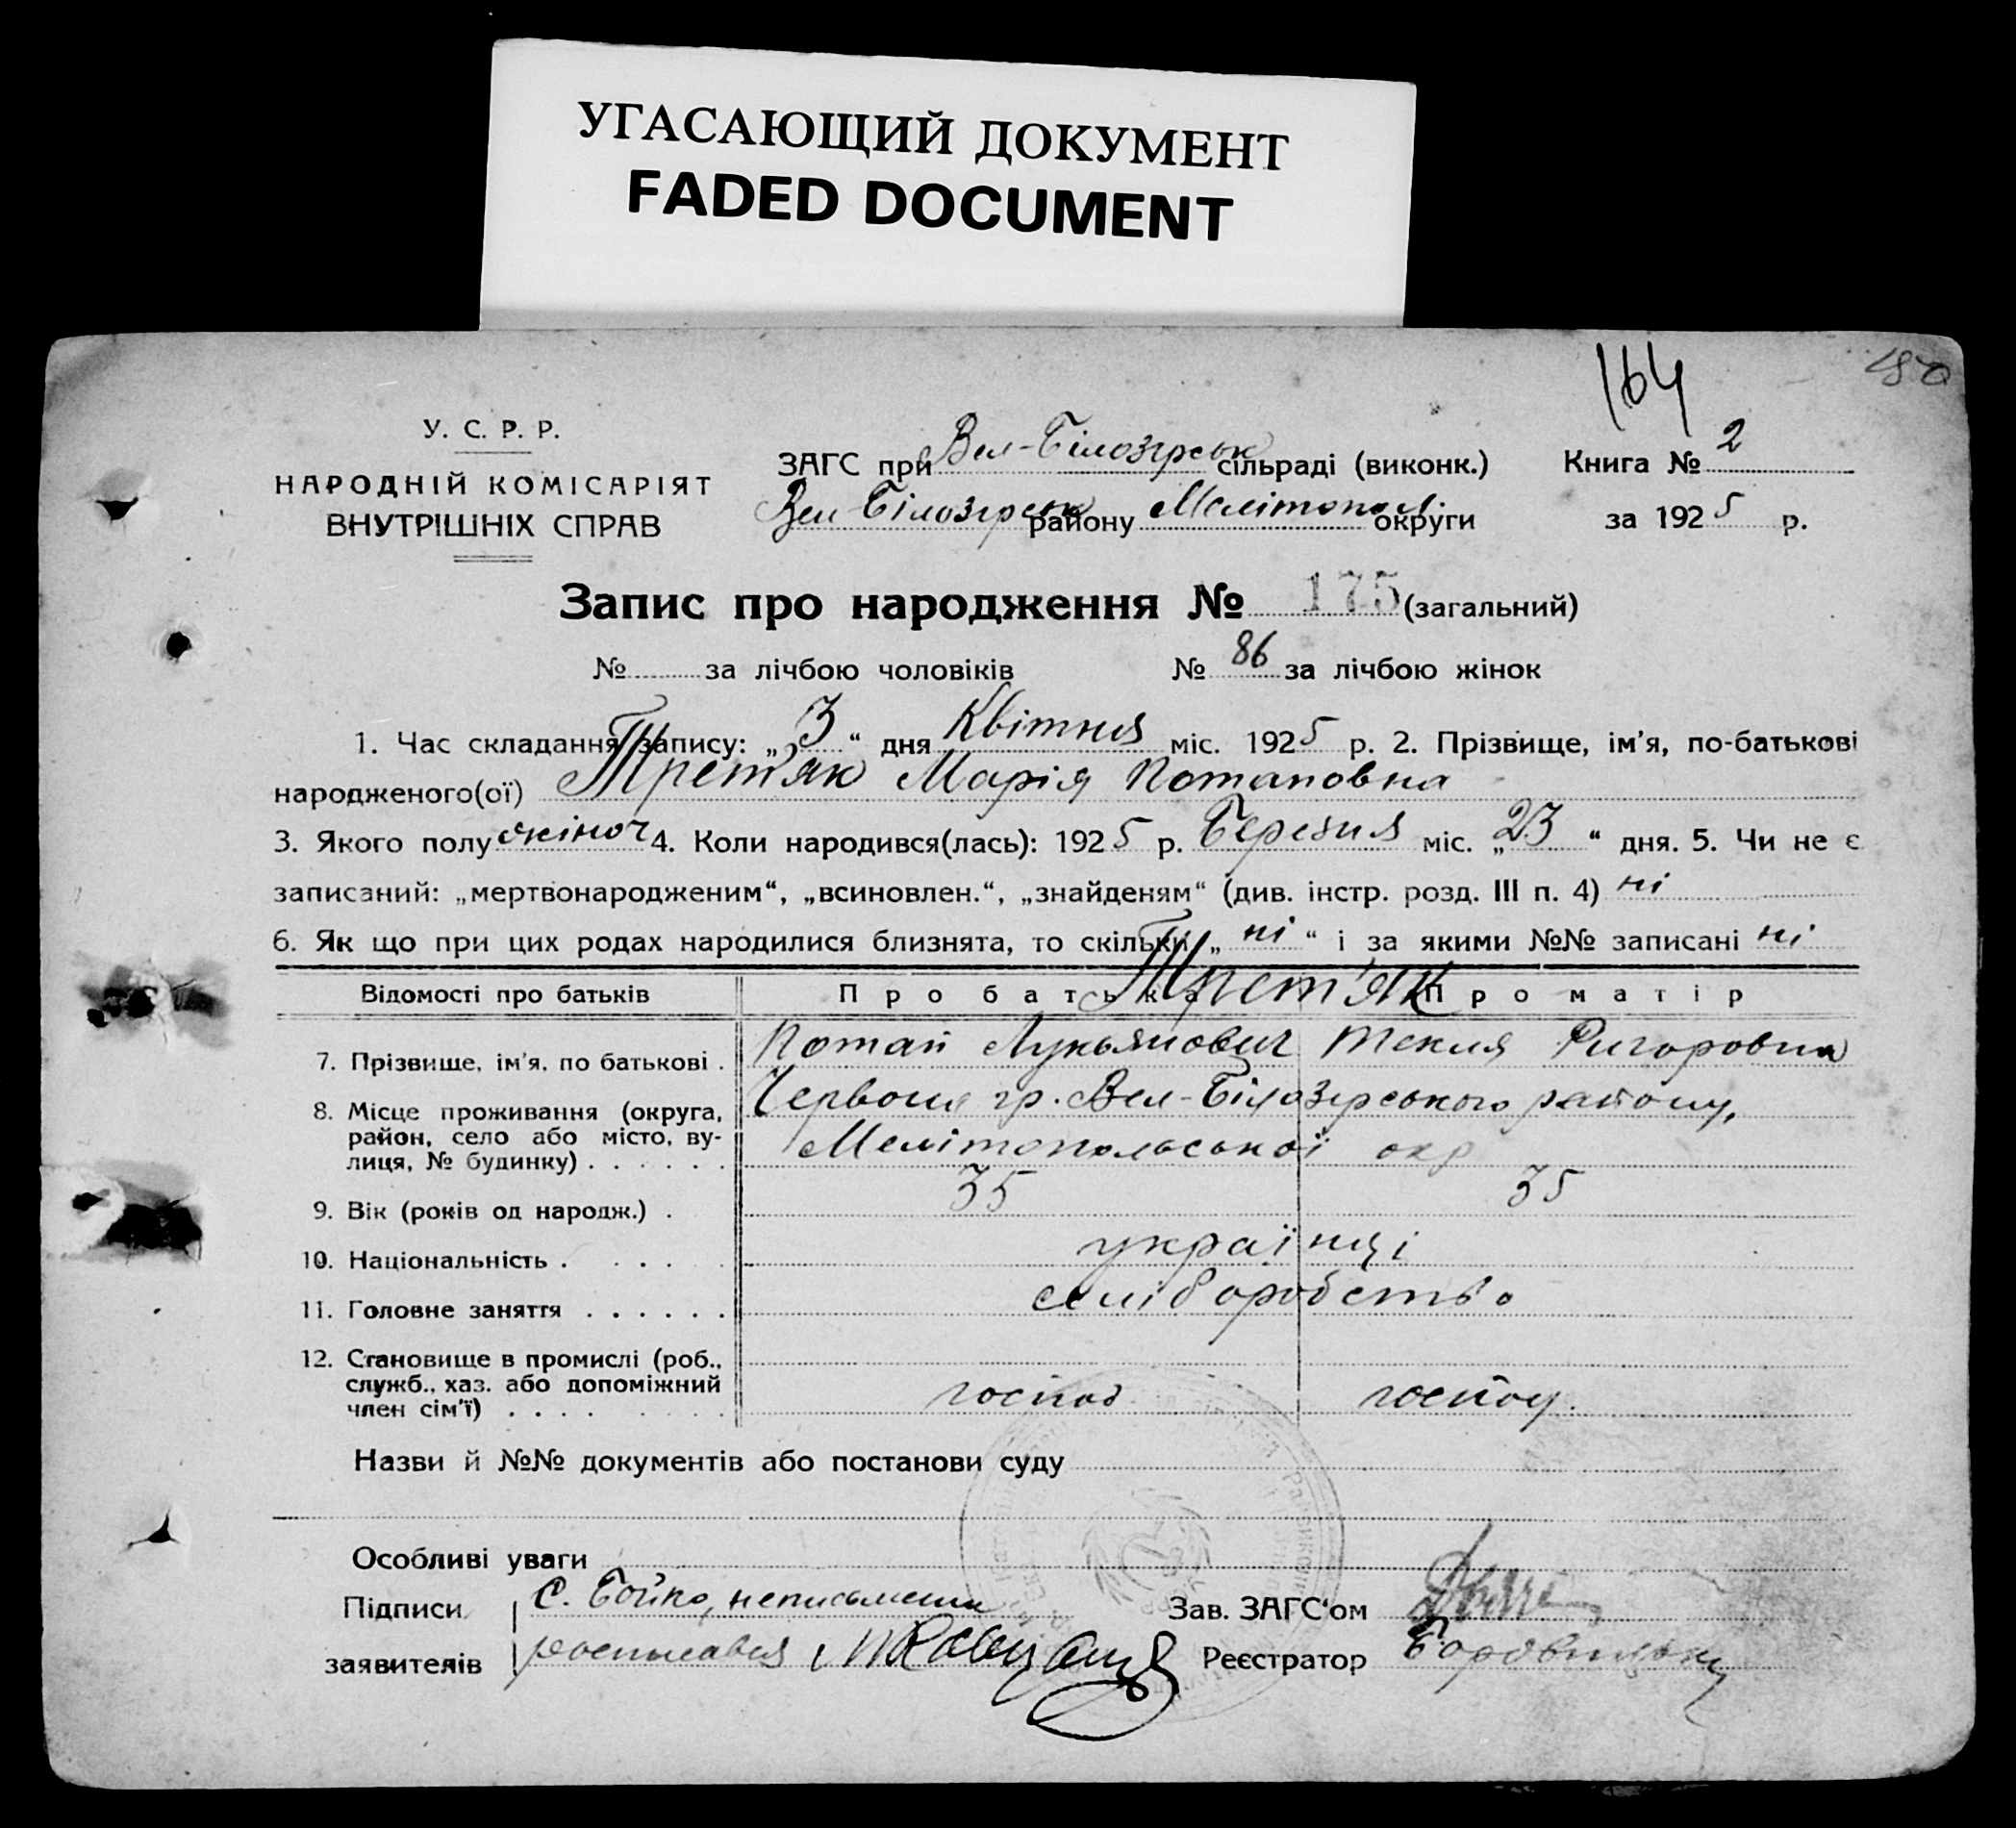 УГАСАЮЩИЙ ДОКУМЕНТ
FADED DOCUMENT
164
У. С. Р. Р.
НАРОДНІЙ КОМІСАРІЯТ
ВНУТРІШНІХ СПРАВ
ЗАГС при Вел-Білозірськ сільраді (виконк.) Книга № 2
Вел-Білозірськ району Мелітопол. округи за 1925 р.
Запис про народження № 175 (загальний)
№ за лічбою чоловіків № 86 за лічбою жінок
1. Час складання запису: „3“ дня Квітня міс. 1925 р. 2. Прізвище, ім'я, по-батькові
народженого(ої) Трет'як Марія Потаповна
3. Якого полу жіноч 4. Коли народився(лась): 1925 р. Березня міс. „23“ дня. 5. Чи не є
записаний: „мертвонародженим“, „всиновлен.“, „знайденям“ (див. інстр. розд. III п. 4) ні
6. Як що при цих родах народилися близнята, то скільки „ні“ і за якими №№ записані ні
Відомості про батьків Про батька Про матір
Трет'як
7. Прізвище, ім'я, по батькові . Потап Лукьянович Текля Ригоровна
8. Місце проживання (округа, район, село або місто, ву-
лиця, № будинку) . . . . . . Червона гр. Вел-Білозірського району,
Мелітопольської окр
9. Вік (років од народж.) . 35 35
10. Національність . . . . . українці
11. Головне заняття . . . . . . хліборобство
12. Становище в промислі (роб.,
служб., хаз. або допоміжний
член сім'ї) . . . . господ. господ.
Назви й №№ документів або постанови суду
Особливі уваги
Підписи С. Бойко, неписьмен Зав. ЗАГС'ом
заявителів росписався Реєстратор